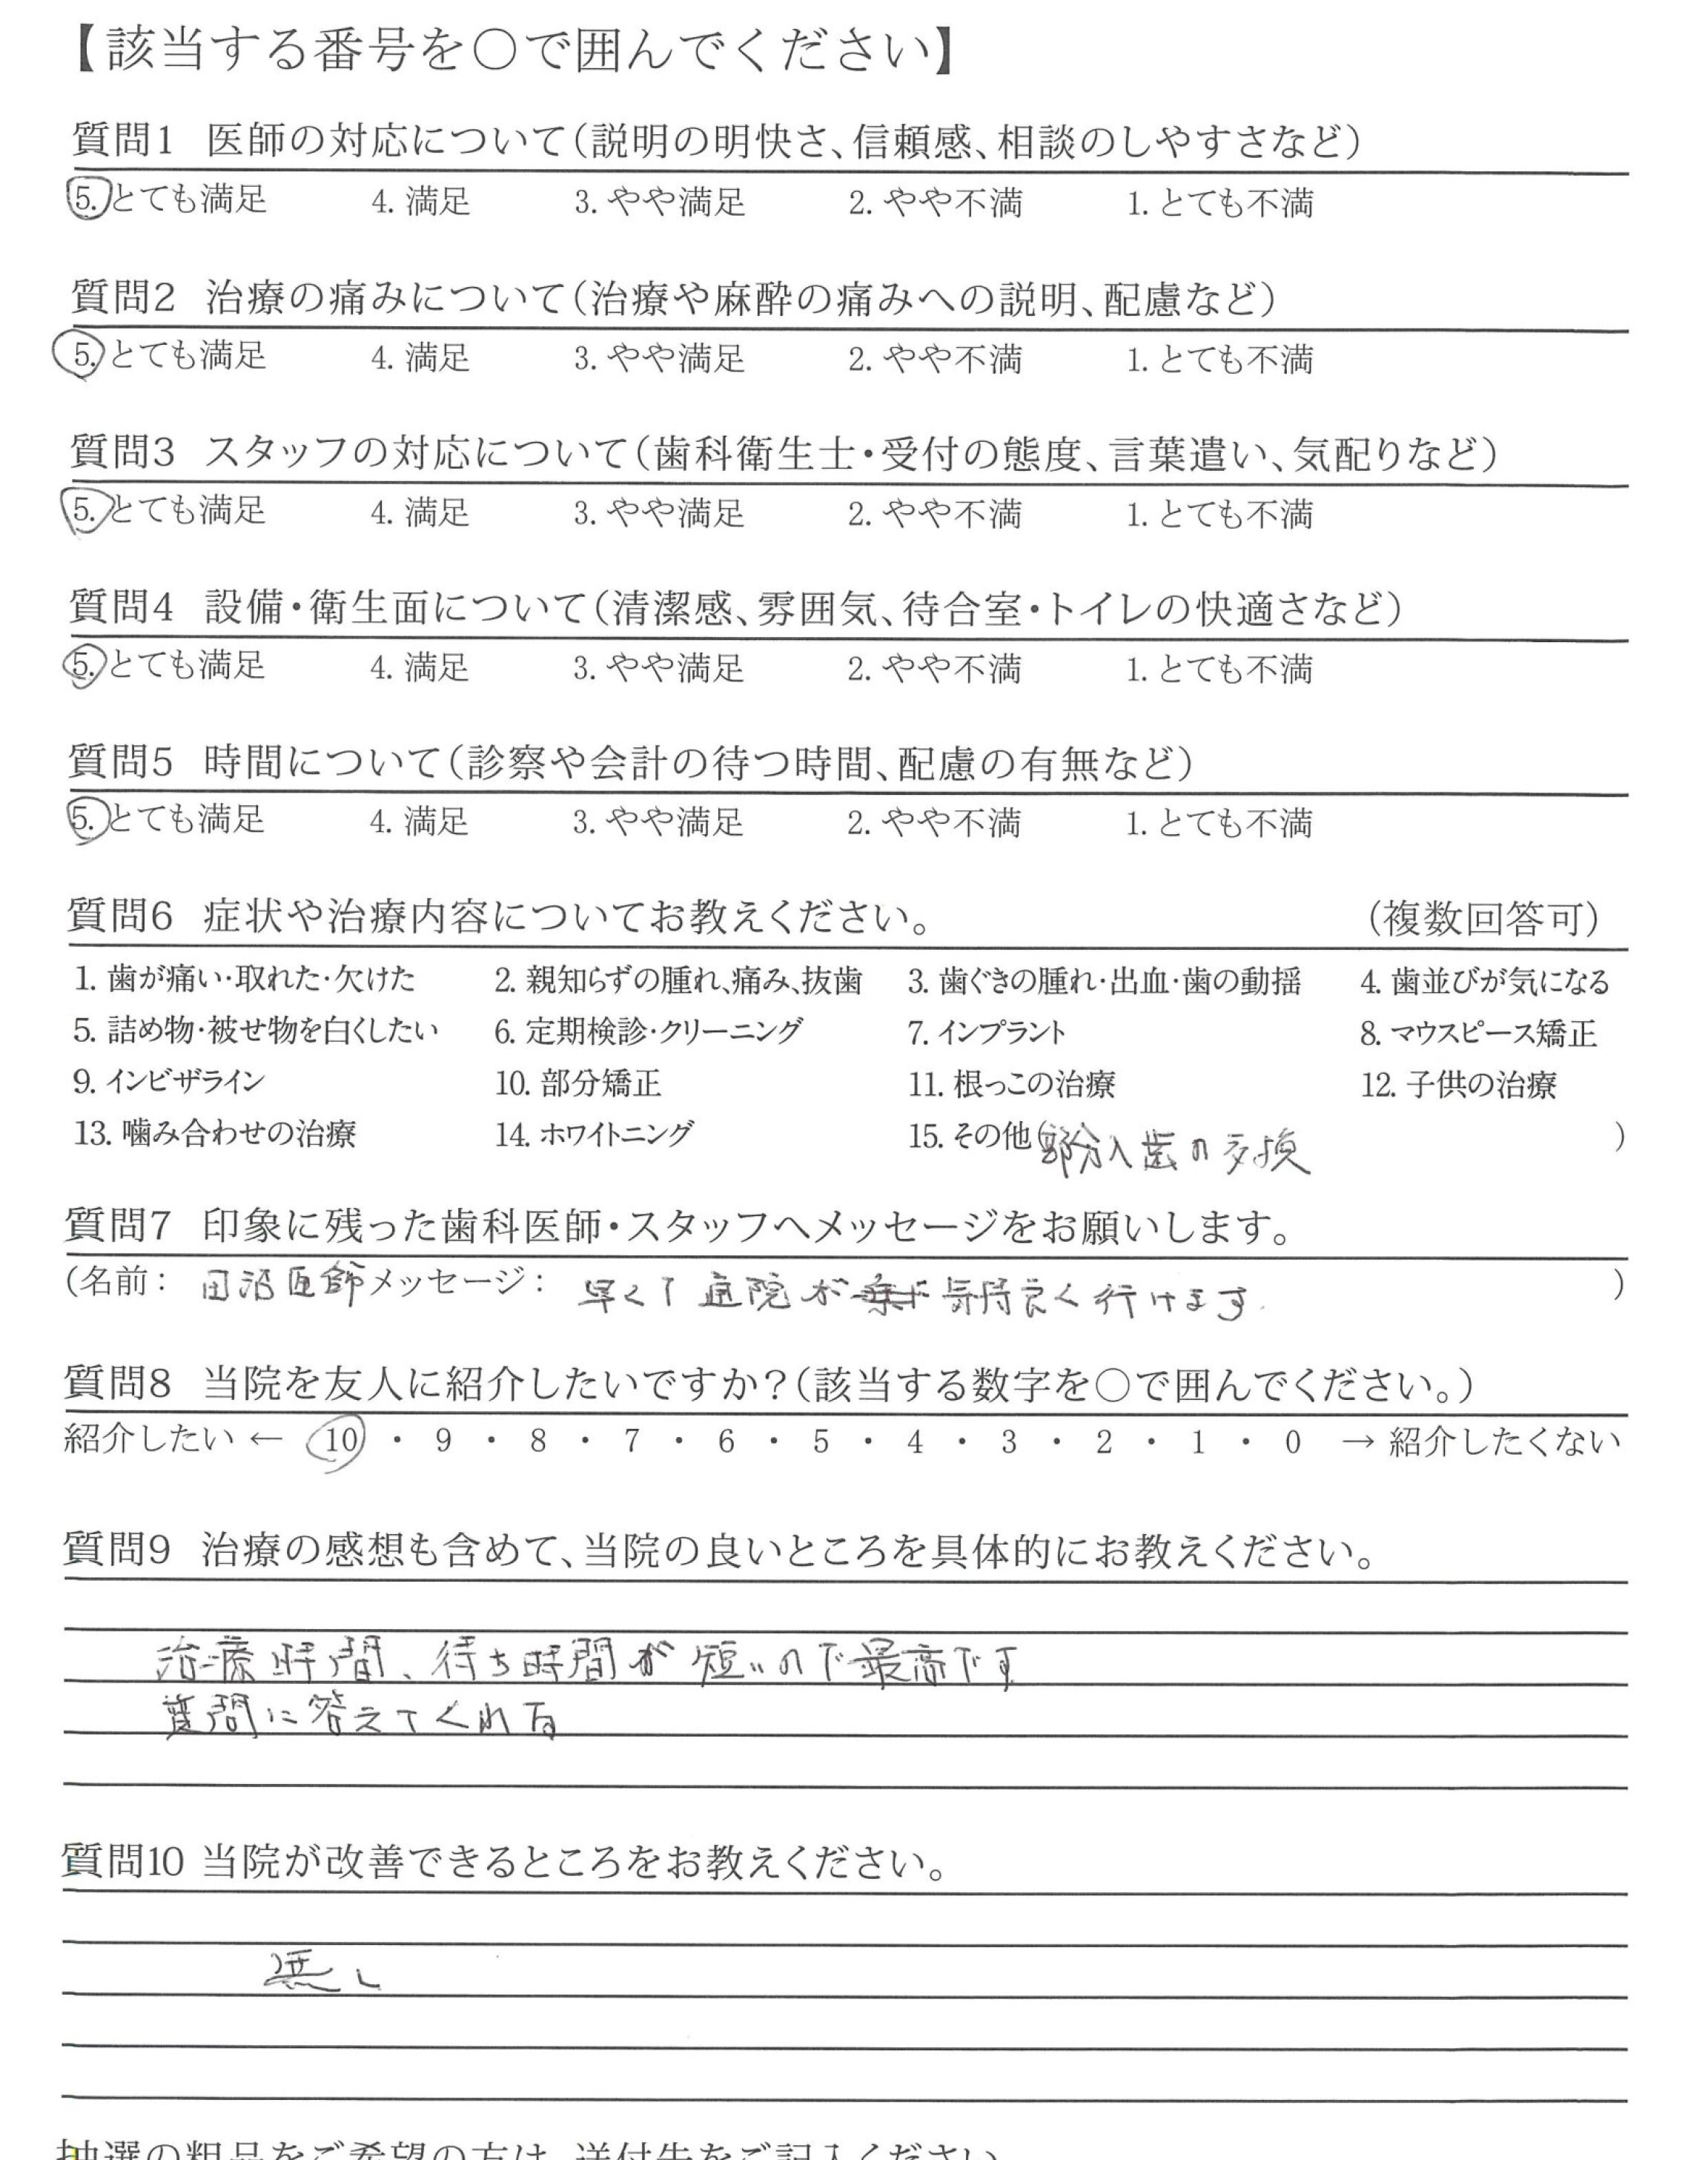 【該当する番号を○で囲んでください】
質問1 医師の対応について(説明の明快さ、信頼感、相談のしやすさなど)
5. とても満足 4. 満足 3. やや満足 2. やや不満 1. とても不満
質問2 治療の痛みについて(治療や麻酔の痛みへの説明、配慮など)
5. とても満足 4. 満足 3. やや満足 2. やや不満 1. とても不満
質問3 スタッフの対応について(歯科衛生士・受付の態度、言葉遣い、気配りなど)
5. とても満足 4. 満足 3. やや満足 2. やや不満 1. とても不満
質問4 設備・衛生面について(清潔感、雰囲気、待合室・トイレの快適さなど)
5. とても満足 4. 満足 3. やや満足 2. やや不満 1. とても不満
質問5 時間について(診察や会計の待つ時間、配慮の有無など)
5. とても満足 4. 満足 3. やや満足 2. やや不満 1. とても不満
質問6 症状や治療内容についてお教えください。 (複数回答可)
1. 歯が痛い・取れた・欠けた 2. 親知らずの腫れ、痛み、抜歯 3. 歯ぐきの腫れ・出血・歯の動揺 4. 歯並びが気になる
5. 詰め物・被せ物を白くしたい 6. 定期検診・クリーニング 7. インプラント 8. マウスピース矯正
9. インビザライン 10. 部分矯正 11. 根っこの治療 12. 子供の治療
13. 噛み合わせの治療 14. ホワイトニング 15. その他(部分入歯の交換 )
質問7 印象に残った歯科医師・スタッフへメッセージをお願いします。
(名前: 田沼医師 メッセージ: 早くて通院が 気持良く行けます )
質問8 当院を友人に紹介したいですか?(該当する数字を○で囲んでください。)
紹介したい ← 10 ・ 9 ・ 8 ・ 7 ・ 6 ・ 5 ・ 4 ・ 3 ・ 2 ・ 1 ・ 0 → 紹介したくない
質問9 治療の感想も含めて、当院の良いところを具体的にお教えください。
治療時間、待ち時間が短いので最高です
質問に答えてくれる
質問10 当院が改善できるところをお教えください。
無し
抽選の粗品をご希望の方は、送付先をご記入ください